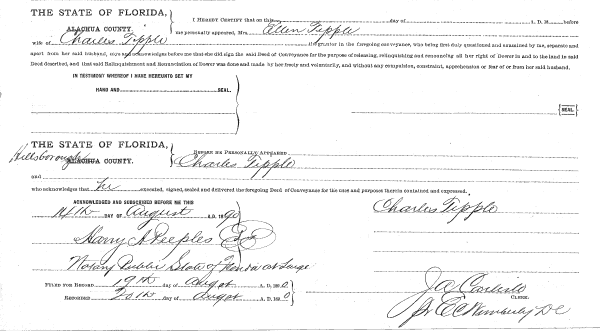 THE STATE OF FLORIDA,
ALACHUA COUNTY.
I HEREBY CERTIFY that on this day of A. D. 18 before
me personally appeared, Mrs. Ellen Tipple
wife of Charles Tipple the grantor in the foregoing conveyance, who being first duly questioned and examined by me, separate and
apart from her said husband, says and acknowledges before me that she did sign the said Deed of Conveyance for the purpose of releasing, relinquishing and renouncing all her right of Dower in and to the land in said
Deed described, and that said Relinquishment and Renunciation of Dower was done and made by her freely and voluntarily, and without any compulsion, constraint, apprehension or fear of or from her said husband.
IN TESTIMONY WHEREOF I HAVE HEREUNTO SET MY
HAND AND SEAL.
[SEAL]
THE STATE OF FLORIDA,
Hillsborough ALACHUA COUNTY.
BEFORE ME PERSONALLY APPEARED
Charles Tipple
and
who acknowledges that he executed, signed, sealed and delivered the foregoing Deed of Conveyance for the uses and purposes therein contained and expressed.
ACKNOWLEDGED AND SUBSCRIBED BEFORE ME THIS
14th DAY OF August A.D. 1890
Charles Tipple
Harry A Peeples
Notary Public State of Florida at Large
FILED FOR RECORD 19th day of August A. D. 1890
RECORDED 20th day of August A. D. 1890
J A Carlisle
CLERK.
Pr E C Wimberly D C